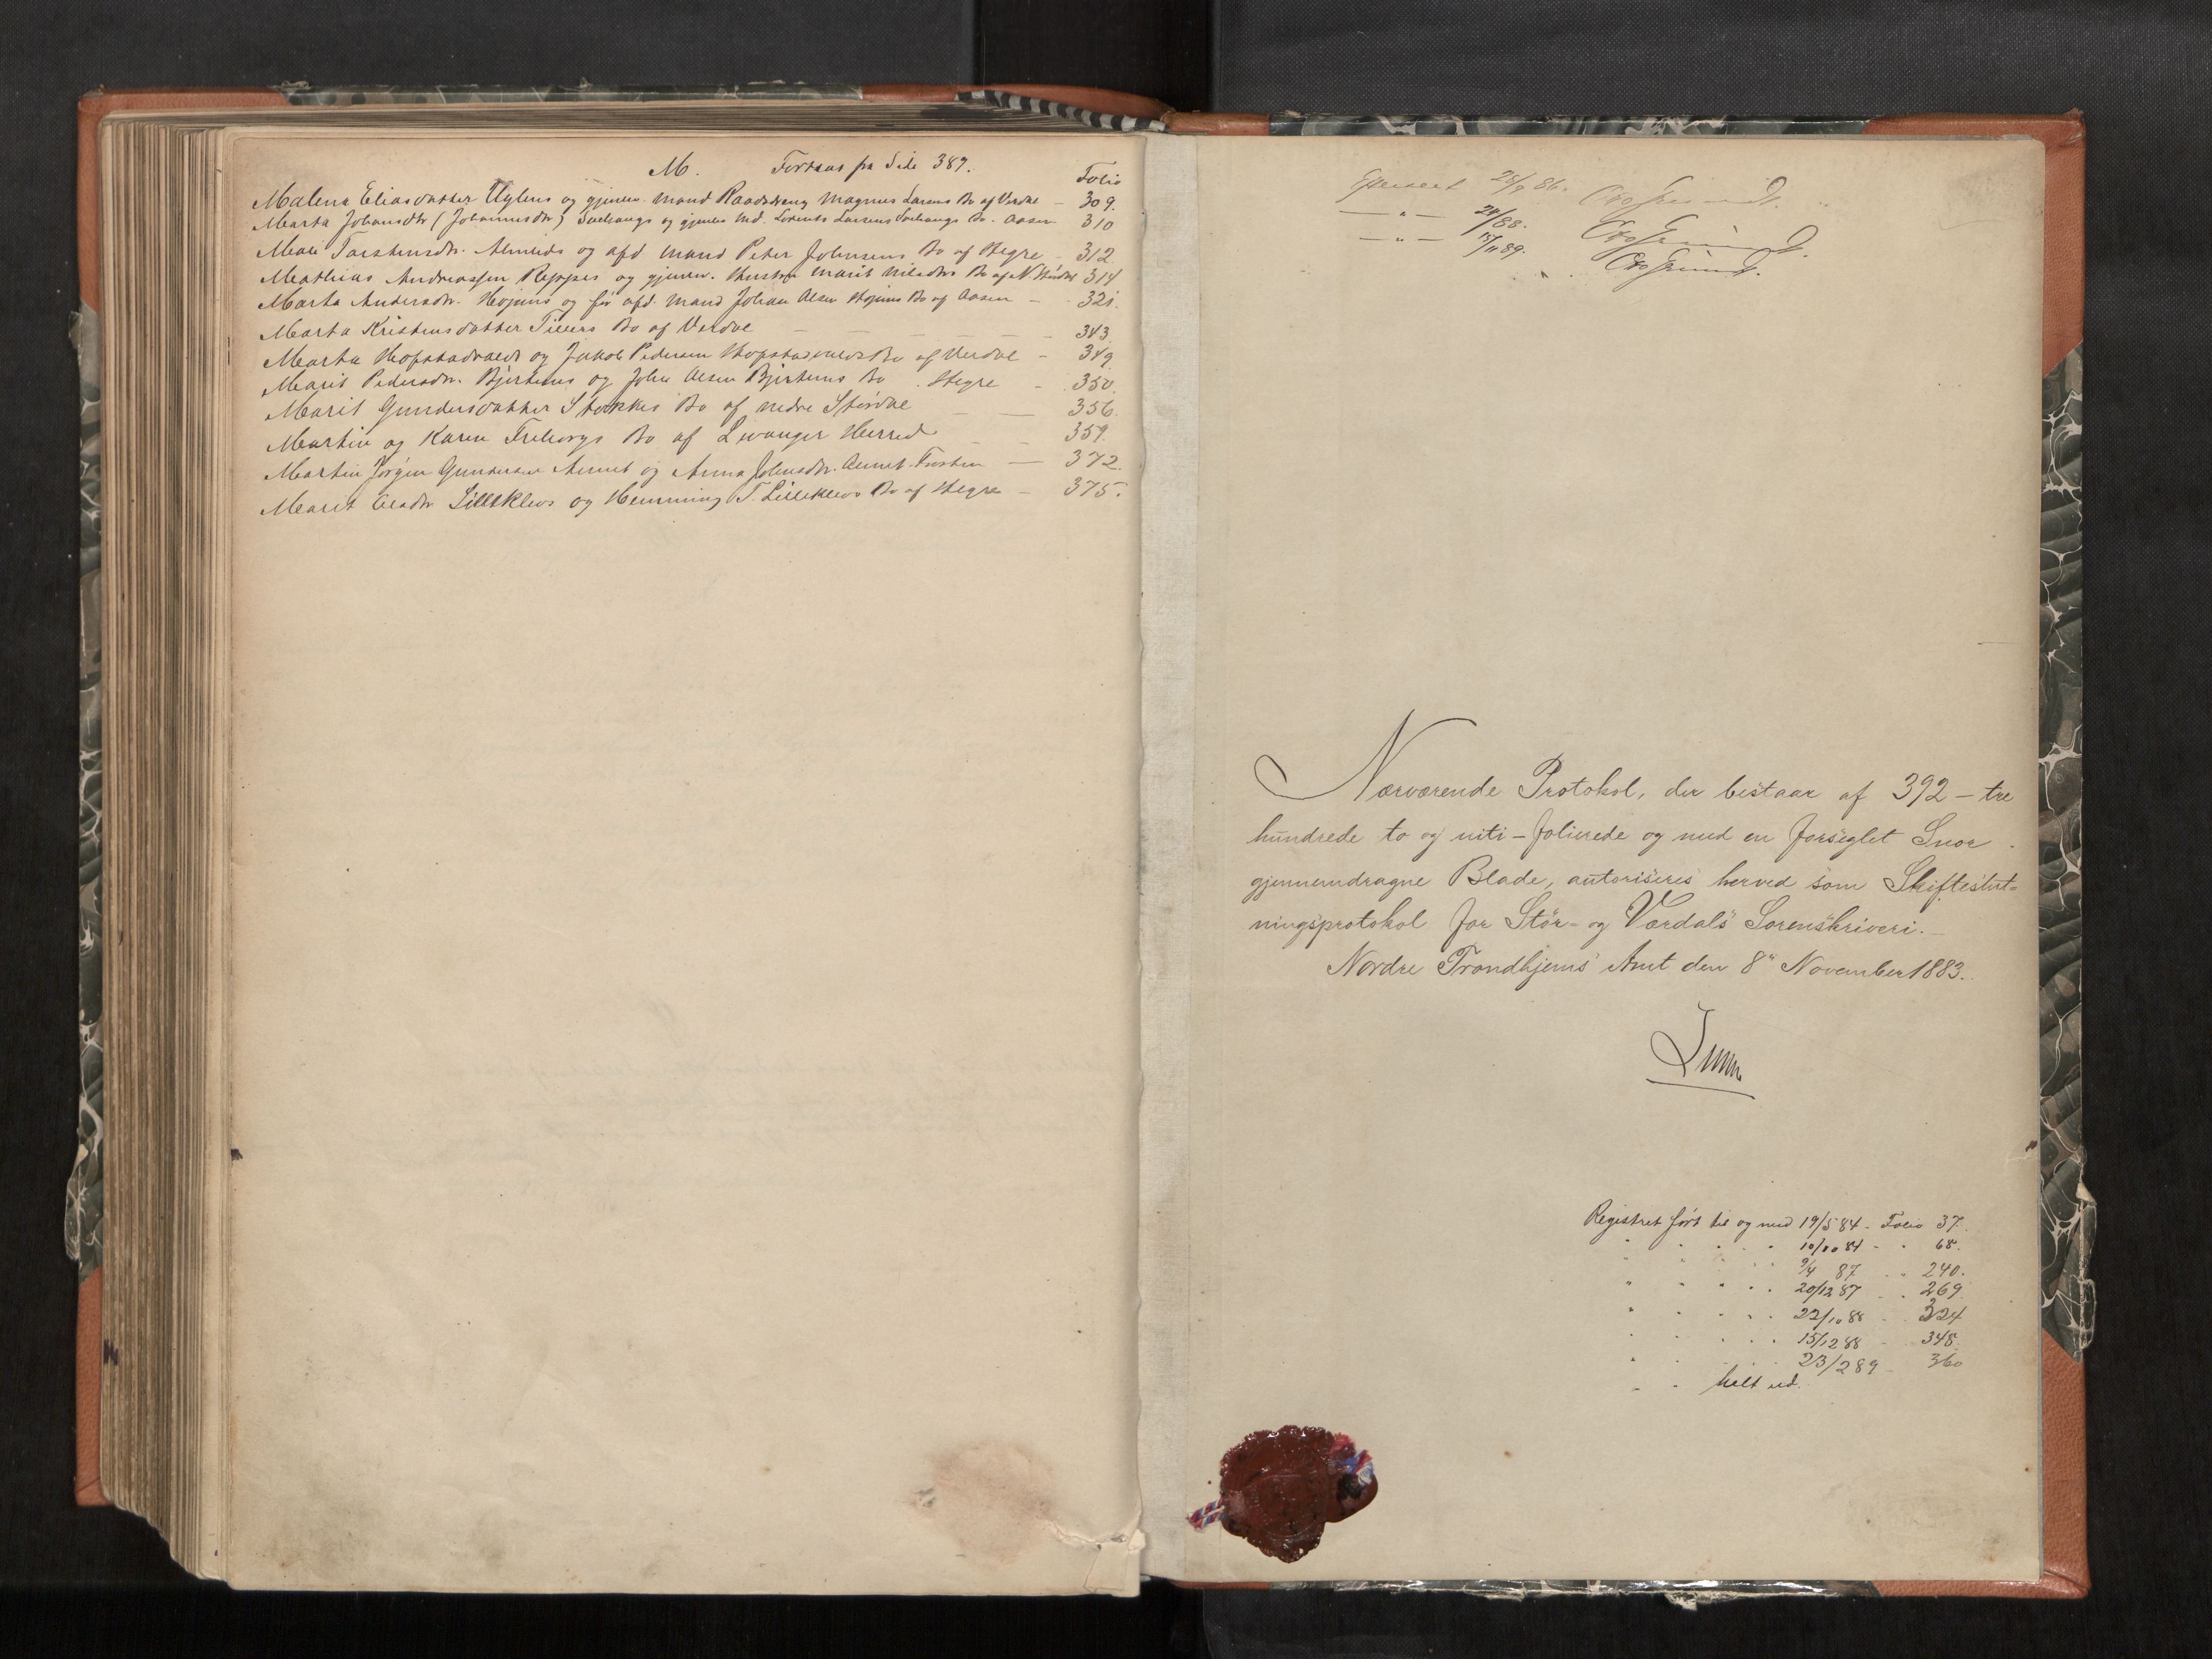 M. Fortsat fra Side 387.
Folio
Malena Eliasdatter Uglens og gjenlev. Mand Raadsdreng Magnus Larsens Bo af Verdal – 309.
Marta Johansdtr (Johannesdtr) og gjenlev Md. Lorents Larsens Bo. Aasen 310
Mali Torstensdtr. Almlids og afd. Mand Peter Johnsens Bo af Hegre – 312.
Mathias Andreassen Reppes og gjenlev. Hustru Marit Nilsdtrs Bo af N. Stördal 314
Marta Andersdtr. Hojems og før afd. Mand Johan Olsen Hojems Bo af Aasen – 321.
Marta Kristensdatter Tillers Bo af Verdal – 343.
Marta Hofstadvalds og Jakob Pedersen Hofstadvalds Bo af Verdal – 349
Marit Pedersdtr. Bjertems og John Olsen Bjertems Bo . Hegre – 350.
Marit Gundersdatter Stokkes Bo af nedre Stördal – 356.
Martin og Karen Treborgs Bo af Levanger Herred – – 359.
Martin Jørgen Gundersen Aunet og Anna Johnsdtr. Aunet. Frosten – 372.
Marit Olsdtr Lilleklevs og Hemming T. Lilleklevs Bo af Hegre – 375.
Efterseet 28/9 86.
– " – 88.
– " – 15/11 89.
Nærværende Protokol, der bestaar af 392 – tre
hundrede to og niti – folierede og med en forseglet Snor
gjennemdragne Blade, autoriseres herved som Skifteslut-
ningsprotokol for Stör- og Værdals Sorenskriveri. –
Nordre Trondhjems Amt den 8" November 1883.
Registret fört til og med 19/5 84 – Folio 37.
" " " " " 10/10 84 – " 68.
" " " " " 9/4 87 " 240.
" " " " " 20/12 87 " 269.
" " " " " 22/10 88 – " 324
" " " " " 15/12 88 – 348.
" " " " " 23/2 89 – 360
" " helt ud.